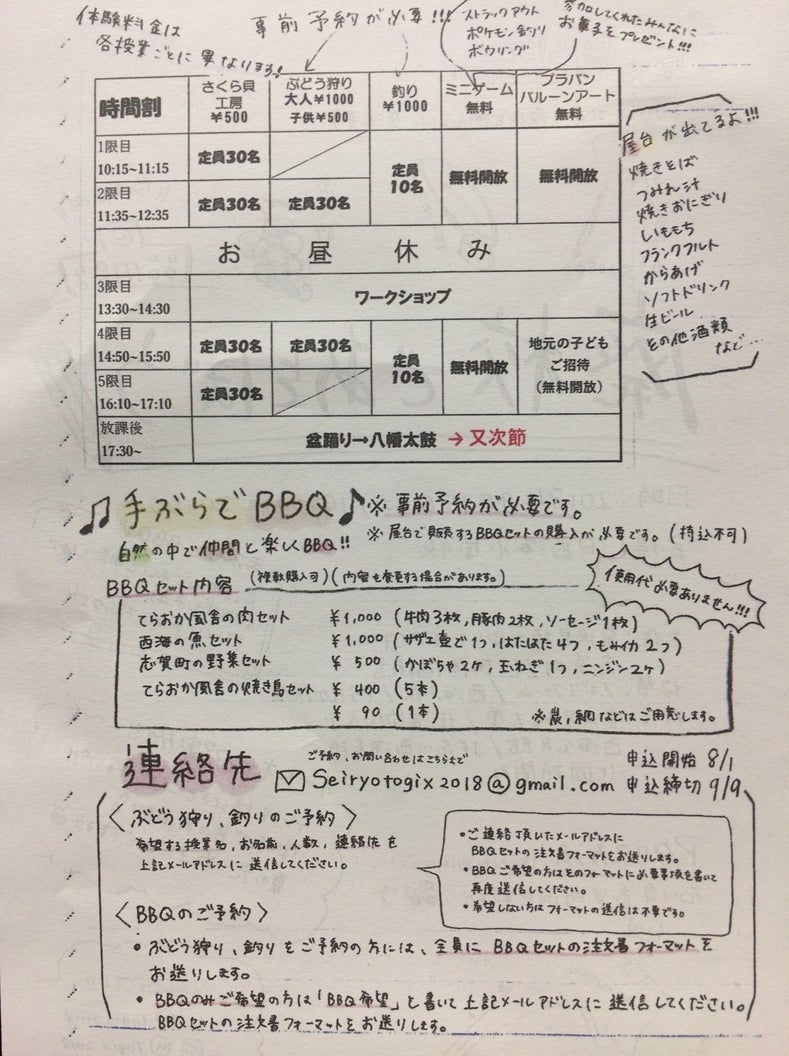 体験料金は
各授業ごとに異なります!
事前予約が必要!!!
ストラックアウト
ポケモン釣り
ボウリング
参加してくれたみんなに
お菓子をプレゼント!!!
時間割
さくら貝
工房
¥500
ぶどう狩り
大人¥1000
子供¥500
釣り
¥1000
ミニゲーム
無料
プラバン
バルーンアート
無料
1限目
10:15~11:15
定員30名
定員
10名
無料開放
無料開放
2限目
11:35~12:35
定員30名
定員30名
お昼休み
3限目
13:30~14:30
ワークショップ
4限目
14:50~15:50
定員30名
定員30名
定員
10名
無料開放
地元の子ども
ご招待
(無料開放)
5限目
16:10~17:10
定員30名
放課後
17:30~
盆踊り→八幡太鼓 → 又次節
屋台が出てるよ!!!
焼きそば
つみれ汁
焼きおにぎり
いももち
フランクフルト
からあげ
ソフトドリンク
生ビール
その他酒類
など…
♫手ぶらでBBQ♪ ※事前予約が必要です。
※屋台で販売するBBQセットの購入が必要です。(持込不可)
自然の中で仲間と楽しくBBQ!!
BBQセット内容 (複数購入可)(内容を変更する場合があります。)
使用代必要ありません!!!
てらおか風舎の肉セット ¥1,000 (牛肉3枚,豚肉2枚,ソーセージ1枚)
西海の魚セット ¥1,000 (サザエ壺で1つ,はたはた4つ,もみイカ2つ)
志賀町の野菜セット ¥500 (かぼちゃ2ヶ,玉ねぎ1つ,ニンジン2ヶ)
てらおか風舎の焼き鳥セット ¥400 (5本)
¥90 (1本)
※炭,網などはご用意します。
連絡先
ご予約、お問い合わせはこちらまで
Seiryotogix2018@gmail.com
申込開始 8/1
申込締切 9/9
〈ぶどう狩り、釣りのご予約〉
希望する授業名,お名前,人数,連絡先を
上記メールアドレスに送信してください。
•ご連絡頂いたメールアドレスに
BBQセットの注文書フォーマットをお送りします。
•BBQご希望の方はそのフォーマットに必要事項を書いて
再度送信してください。
•希望しない方はフォーマットの送信は不要です。
〈BBQのご予約〉
•ぶどう狩り、釣りをご予約の方には、全員にBBQセットの注文書フォーマットを
お送りします。
•BBQのみご希望の方は「BBQ希望」と書いて上記メールアドレスに送信してください。
BBQセットの注文書フォーマットをお送りします。